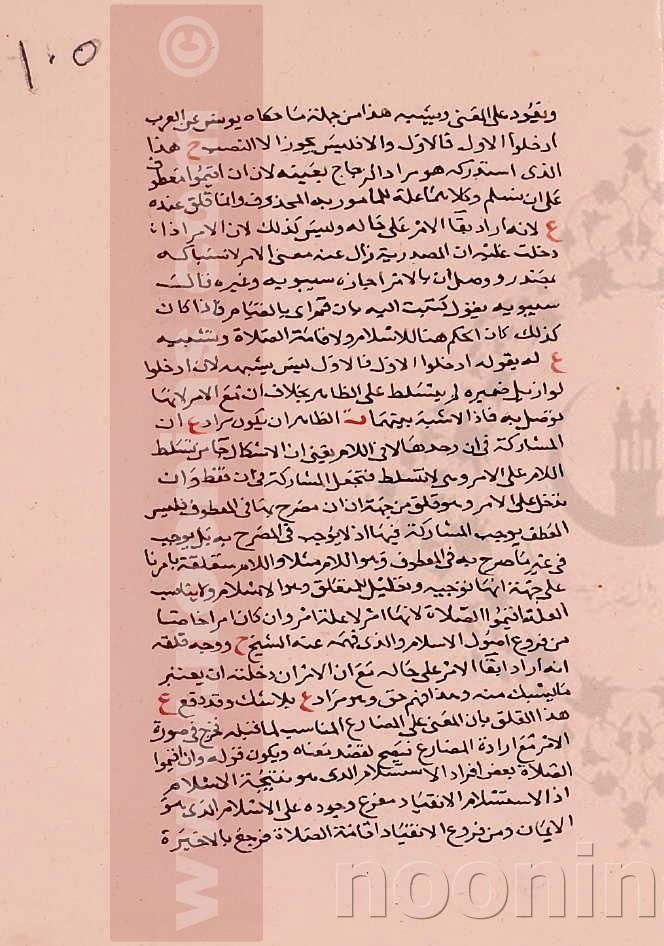 ١٠٥
ويعود على المعنى ويشبه هذا من جملة ما حكاه يونس عن العرب
ادخلوا الاول فالاول والا فليس يجوز الا النصب ح هذا
الذى استدركه هو مراد الزجاج بعينه لان ان اقيموا معطوف
على ان نسلم وكلاهما علة للمامور به المحذوف وانما قلق عنده
ع لانه اراد بقا الامر على حاله وليس كذلك لان الامر اذا
دخلت عليه ان المصدرية زال عنه معنى الامر لانسباكه
بمصدر ووصل ان بالامر اجازه سيبويه وغيره قال
سيبويه بقول كتبت اليه بان قم اى بالقيام فاذا كان
كذلك كان الحكم هنا للاسلام ولاقامة الصلاة وتشبيه
ع له بقوله ادخلوا الاول فالاول ليس يشبهه لان ادخلوا
لو ازيل ضميره لم يتسلط على الظاهر بخلاف ان مع الامر لانها
توصل به فاذا لا شبه بينهما الظاهر ان يكون مراد ع ان
المشاركة فى ان وحدها لا فى اللام يعنى ان الاشكال جا من تسلط
اللام على الامر وهى لا تتسلط فتجعل المشاركة فى ان فقط وان
تدخل على الامر وهو قلق من جهة ان ان مصرح بها فى المعطوف فليس
العطف يوجب المشاركة فيها اذ لا يوجب فى المصرح به بل يوجب
فى غير ما صرح به فى المعطوف وهو اللام مثلا واللام متعلقة بامرنا
على جهة انها توجيه وتعليل للمتعلق وهو الاسلام ولا يناسب
العلة اقيموا الصلاة لانها امر لا علة امر وان كان امرا خاصا
من فروع اصول الاسلام والذى فهمه عنه الشيخ ح ووجه قلقه
انه اراد ابقا الامر على حاله مع ان الامر ان دخلته ان يعتبر
ما ينسبك منه وهذا فهم حق وهو مراد ع بلا شك وقد دفع ع
هذا القلق بان المعنى على المضارع المناسب لما قبله فخرج فى صورة
الامر مع ارادة المضارع فيصح لقصد معناه ويكون قوله وان اقيموا
الصلاة بعض افراد الاستسلام الذى هو نتيجة الاسلام
اذا الاستسلام الانقياد مفرع وجوده على الاسلام الذى هو
الايمان ومن فروع الانقياد اقامة الصلاة فرجع بالاخيرة
noonin